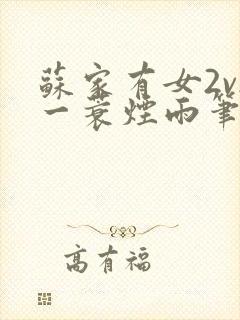 蘇家有女2v
一蓑煙雨筆
高有福